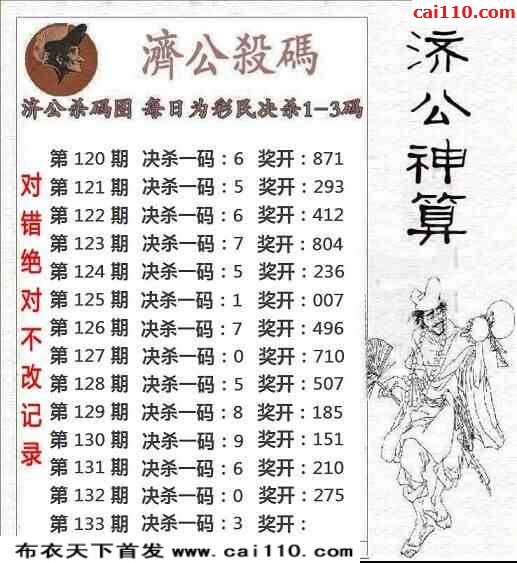 cai110.com
濟公殺碼
济公杀码图 每日为彩民决杀1-3码
济公神算
对错绝对不改记录
第 120 期 决杀一码：6 奖开：871
第 121 期 决杀一码：5 奖开：293
第 122 期 决杀一码：6 奖开：412
第 123 期 决杀一码：7 奖开：804
第 124 期 决杀一码：5 奖开：236
第 125 期 决杀一码：1 奖开：007
第 126 期 决杀一码：7 奖开：496
第 127 期 决杀一码：0 奖开：710
第 128 期 决杀一码：5 奖开：507
第 129 期 决杀一码：8 奖开：185
第 130 期 决杀一码：9 奖开：151
第 131 期 决杀一码：6 奖开：210
第 132 期 决杀一码：0 奖开：275
第 133 期 决杀一码：3 奖开：
布衣天下首发 www.cai110.com